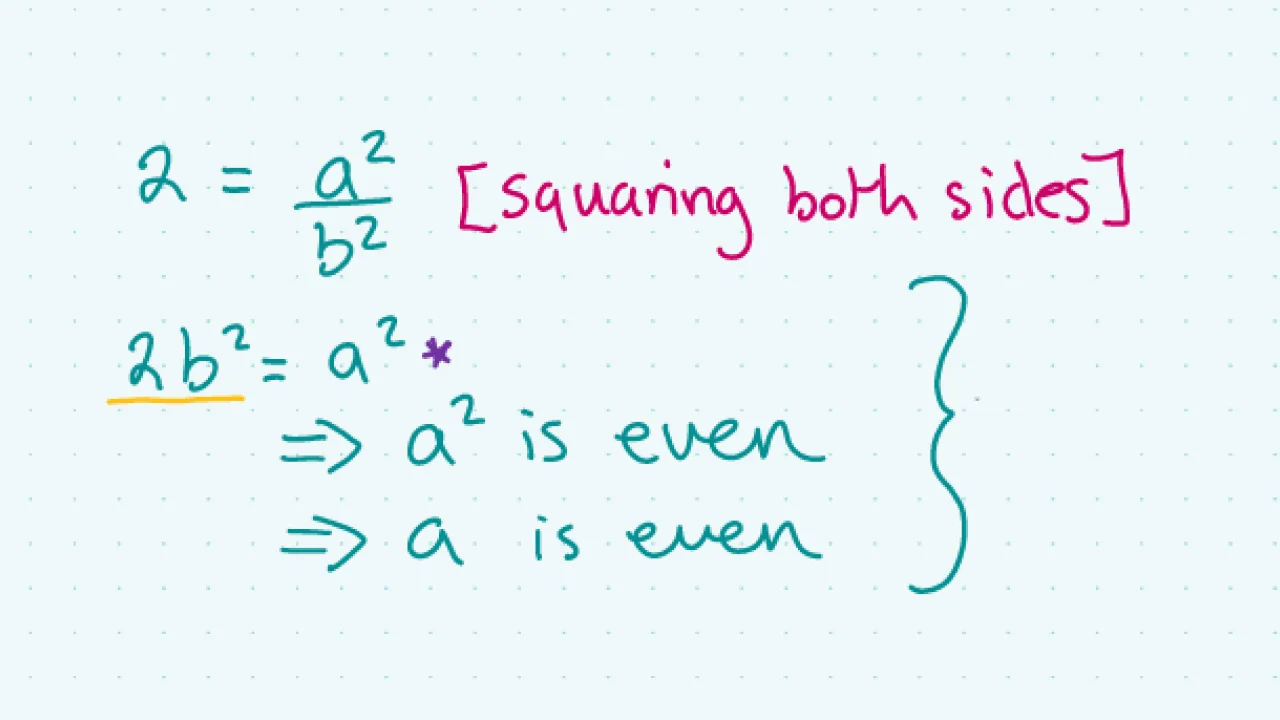 2 = a²/b² [squaring both sides]
2b² = a² *
=> a² is even
=> a is even